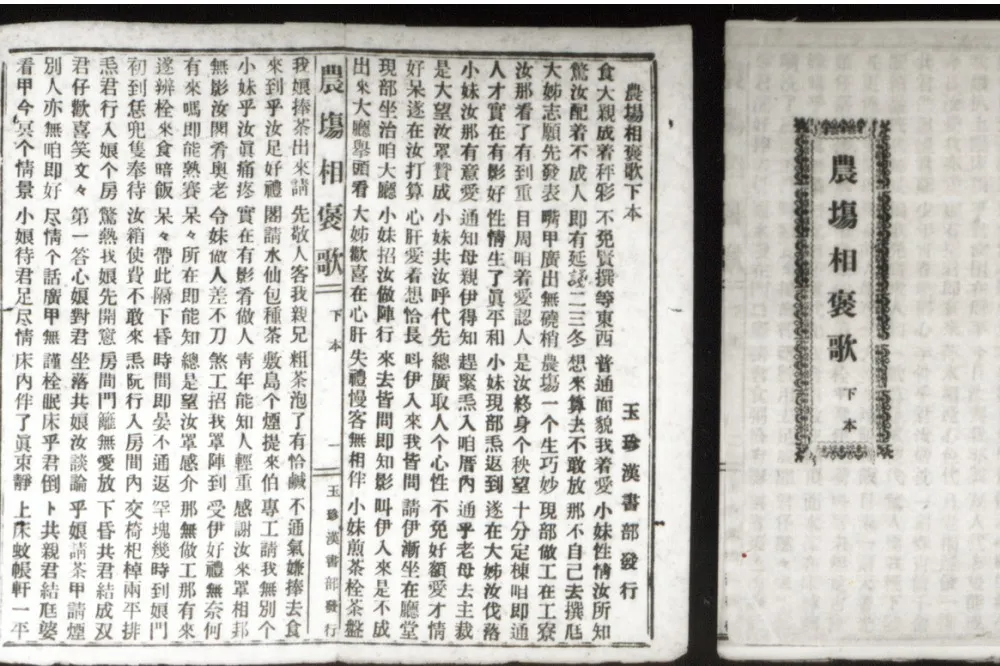 農塲相褒歌
下本
農塲相褒歌下本 玉珍漢書部發行
食大親成着秤彩 不免賢撰等東西 普通面貌我着愛 小妹性情汝所知
驚汝配着不成人 即有延諉二三冬 想來算去不敢放 那不自己去撰尫
大姊志願先發表 嘴甲廣出無磽梢 農塲一个生巧妙 現部做工在工寮
汝那看了有到重 目周咱着愛認人 是汝終身个秧望 十分定棟咱即通
人才實在有影好 性情生了眞平和 小妹現部𤆬返到 遂在大姊汝伐落
小妹汝那有意愛 通知母親伊得知 趕緊𤆬入咱厝內 通乎老母去主裁
是大望汝罩贊成 小妹共汝呼代先 總廣取人个心性 不免好額愛才情
好呆遂在汝打算 心肝愛着想恰長 叫伊入來我皆問 請伊漸坐在廳堂
現部坐治咱大廳 小妹招汝做陣行 來去皆問即知影 叫伊入來是不成
出來大廳擧頭看 大姊歡喜在心肝 失禮慢客無相伴 小妹煎茶栓茶盤
農塲相褒歌 下本 一 玉珍漢書部發行
我娘捧茶出來請 先敬人客我親兄 粗茶泡了有恰鹹 不通氣嫌捧去食
來到乎汝足好禮 閣請水仙包種茶 敷島个煙提來伯 專工請我無別个
小妹乎汝眞痛疼 實在有影肴做人 靑年能知人輕重 感謝汝來罩相邦
無影汝閣肴奧老 令妹做人差不刀 煞工招我罩陣到 受伊好禮無奈何
有來嗎即能熟賽 呆々所在即能知 總是望汝罩感介 那無做工那有來
遂辦栓來食暗飯 呆々帶此隔下昏 時間即晏不通返 罕塊幾時到娘門
初到恁兜隻奉待 汝箱使費不敢來 𤆬阮行入房間內 交椅杞棹兩平排
𤆬君行入娘个房 驚熱我娘先開窓 房間門籬無愛放 下昏共君結成双
君仔歡喜笑文々 第一答心娘對君 坐落共娘汝談論 乎娘請茶甲請煙
別人亦無咱即好 尽情个話廣甲無 謹栓眠床乎君倒 卜共親君結尫婆
看甲今冥个情景 小娘待君足尽情 床內伴了眞束靜 上床蚊帳軒一平